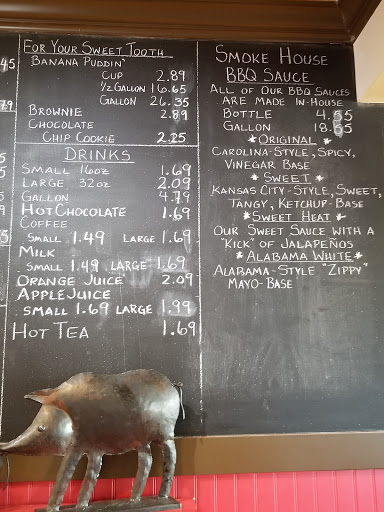 For Your Sweet Tooth
Banana Puddin'
Cup 2.89
½ Gallon 16.65
Gallon 26.35
Brownie 2.89
Chocolate
Chip Cookie 2.25
Drinks
Small 16oz 1.69
Large 32oz 2.09
Gallon 4.79
Hot Chocolate 1.69
Coffee
Small 1.49 Large 1.69
Milk
Small 1.49 Large 1.69
Orange Juice 2.09
Apple Juice
Small 1.69 Large 1.99
Hot Tea 1.69
Smoke House
BBQ Sauce
All of Our BBQ Sauces
are Made In-House
Bottle 4.55
Gallon 18.55
*Original*
Carolina-Style, Spicy,
Vinegar Base
*Sweet*
Kansas City-Style, Sweet,
Tangy, Ketchup-Base
*Sweet Heat*
Our Sweet Sauce with a
"Kick" of Jalapeños
*Alabama White*
Alabama-Style "Zippy"
Mayo-Base